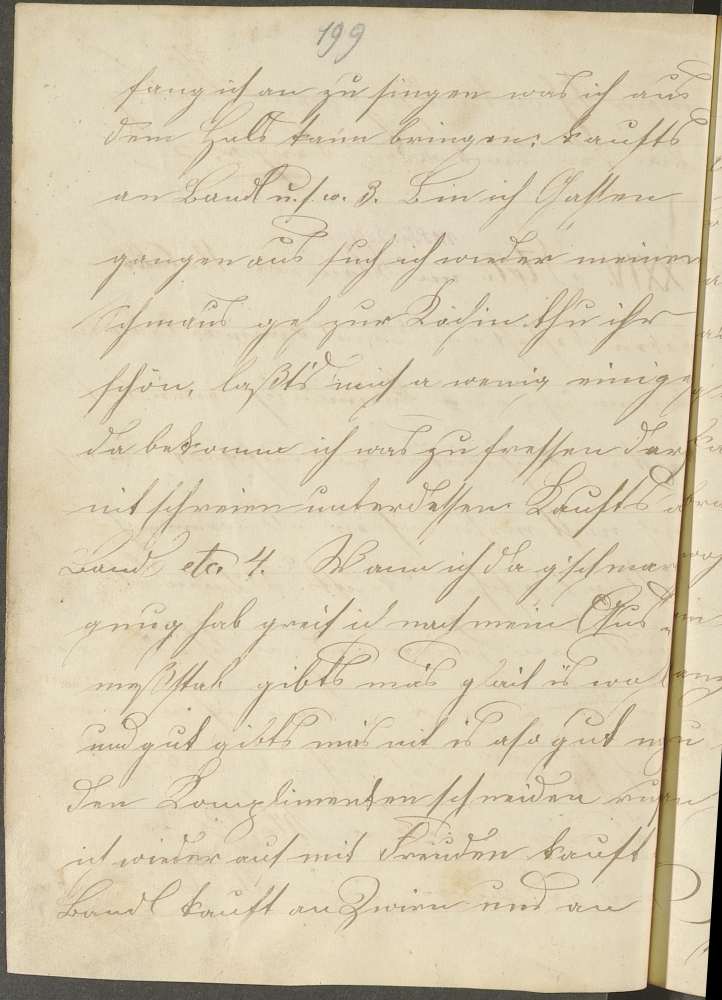 199
fang ich an zu singen was ich aus
dem Hals kann bringen: kaufts
an Bandl u.s.w. 3. Bin ich Gassen
gangen aus such ich wieder meinen
Schmaus geh zur Köchin thu ihr
schön, laßt's mich a wenig einigeh
da bekomm ich was zu fressen darf a
nit schreien unterdessen: Kaufts
Band etc. 4. Wann ich da gschmar
gnug hab greif ich nach mein
meßstab gibts mas glait is wol
und gut gibts mas nit is aso gut
den Komplimenten schneiden
ich wieder auf mit Freuden kauft
Bandl kauft an Zwirn und an